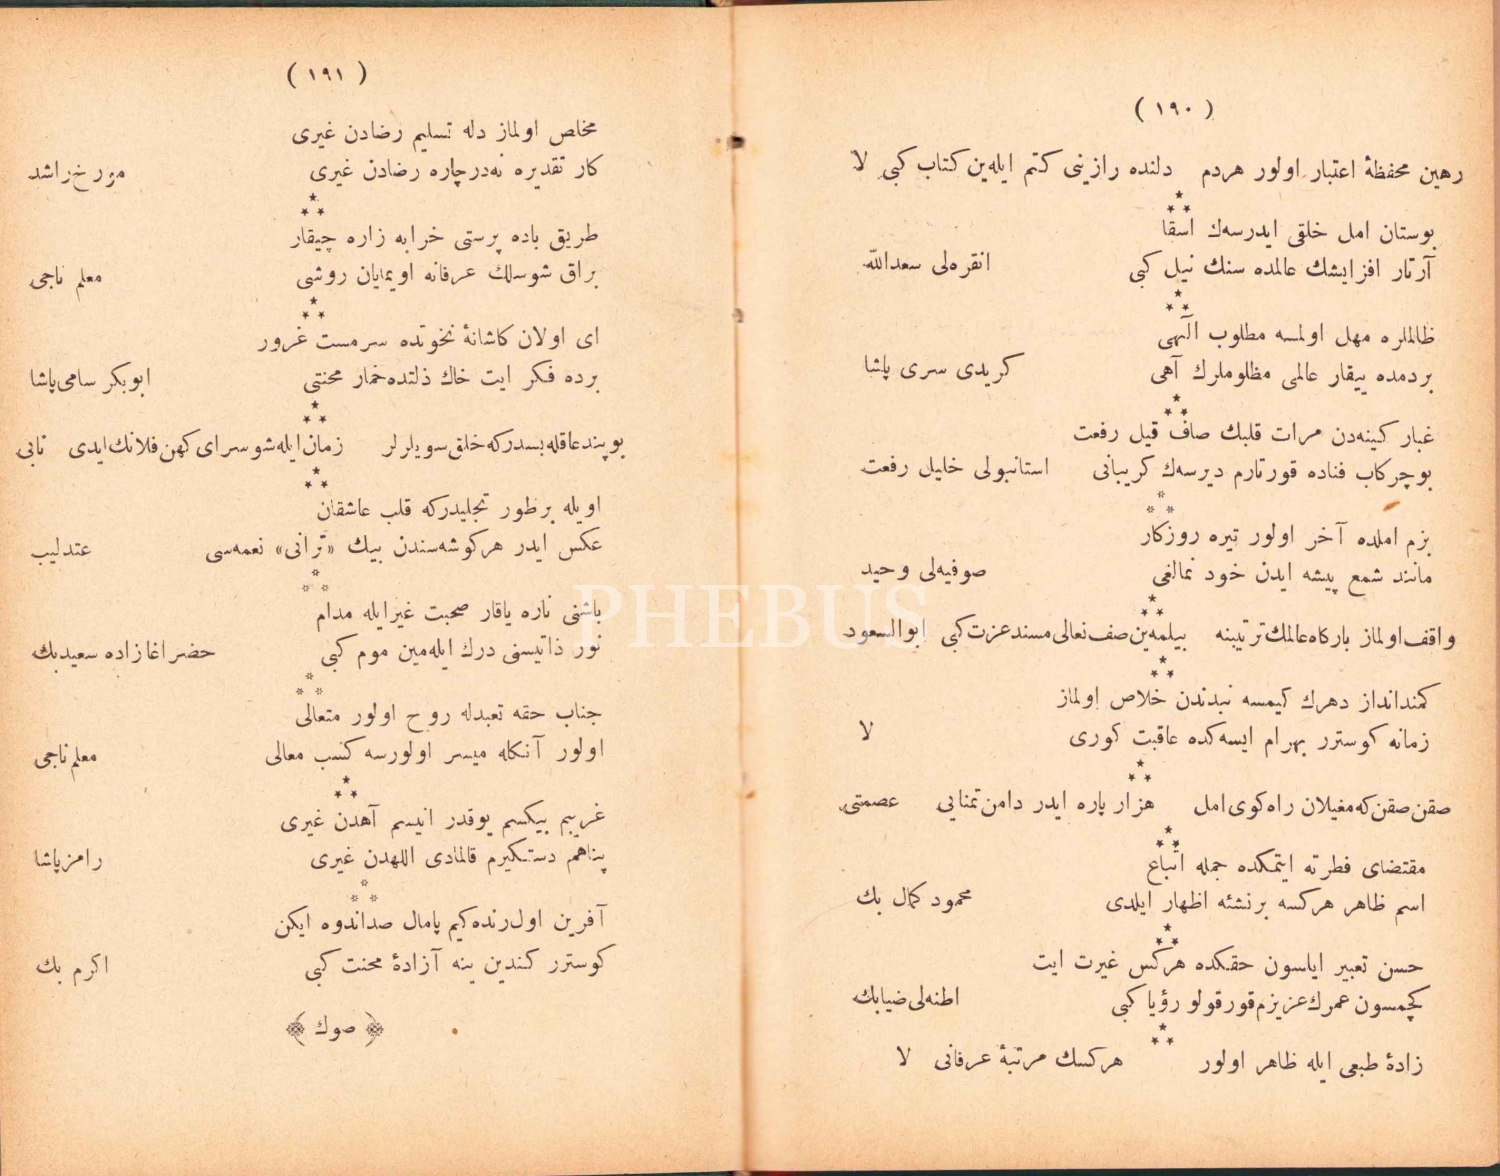 ( ١٩٠ )
رهين محفظهٔ اعتبار اولور هردم دلنده رازينى كتم ايله‌ين كتاب كبى لا
بوستان امل خلقى ايدرسه‌ك اسقا
آرتار افزايشك عالمده سنك نيل كبى انقره‌لى سعدالله
ظالملره مهل اولمسه مطلوب الٓهى
بردمده ييقار عالمى مظلوملرك آهى كريدى سرى پاشا
غبار كينه‌دن مرات قلبك صاف قيل رفعت
بوچركاب فناده قورتارم ديرسه‌ك كريبانى استانبولى خليل رفعت
بزم املده آخر اولور تيره روزكار
مانند شمع پيشه ايدن خود نمالغى صوفيه‌لى وحيد
واقف اولماز باركاه عالمك ترتيبنه بيلمه‌ين صف نعالى مسند عزت كبى ابوالسعود
كمندانداز دهرك كيمسه نبدندن خلاص اولماز
زمانه كوسترر بهرام ايسه‌كده عاقبت كورى لا
صقن صقن كه مغيلان راه كوى امل هزار پاره ايدر دامن تمنايى عصمتى
مقتضاى فطرته ايتمكده جمله اتباع
اسم ظاهر هركسه برنشئه اظهار ايلدى محمود كمال بك
حسن تعبير ايلسون حقكده هركس غيرت ايت
كچمسون عمرك عزيزم قورقولو رؤيا كبى اطنه‌لى ضيابك
زادهٔ طبعى ايله ظاهر اولور هركسك مرتبهٔ عرفانى لا
( ١٩١ )
مخلص اولماز دله تسليم رضادن غيرى
كار تقديره نه‌در چاره رضادن غيرى مورخ راشد
طريق باده پرستى خرابه زاره چيقار
براق شوسالك عرفانه اويمايان روشى معلم ناجى
اى اولان كاشانهٔ نخوتده سرمست غرور
برده فكر ايت خاك ذلتده خمار محنتى ابوبكر سامى پاشا
بوپند عاقله بسدر كه خلق سويلرلر زمان ايله شوسراى كهن فلانك ايدى نابى
اويله برطور تجليدركه قلب عاشقان
عكس ايدر هركوشه‌سندن بيك «ترانى» نغمه‌سى عندليب
باشنى ناره ياقار صحبت غيرايله مدام
نور ذاتيسنى درك ايله‌مين موم كبى حضر اغا زاده سعيدبك
جناب حقه تعبدله روح اولور متعالى
اولور آنكله ميسر اولورسه كسب معالى معلم ناجى
غريبم بيكسم يوقدر انيسم آهدن غيرى
پناهم دستكيرم قالمادى اللهدن غيرى رامز پاشا
آفرين اول رنده كيم پامال صداندوه ايكن
كوسترر كندين ينه آزادهٔ محنت كبى اكرم بك
﴿ صوك ﴾
PHEBUS